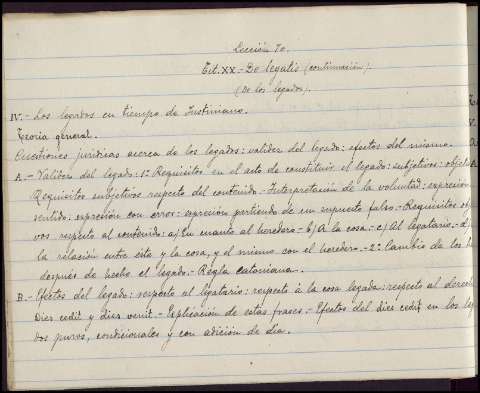 Lección 70.
Tit. XX.- De legatis (continuación).
(De los legados).
IV.- Los legados en tiempo de Justiniano.
Teoría general.
Cuestiones jurídicas acerca de los legados: validez del legado: efectos del mismo.
A.- Validez del legado: 1º Requisitos en el acto de constituir el legado: subjetivos: objet
Requisitos subjetivos respecto del contenido.- Interpretación de la voluntad: expresión
sentido: expresión con error: expresión partiendo de un supuesto falso.- Requisitos obj
vos respecto al contenido: a) En cuanto al heredero.- b) A la cosa.- c) Al legatario.- d)
la relación entre éste y la cosa, y el mismo con el heredero.- 2º Cambio de los
después de hecho el legado.- Regla catoniana.-
B.- Efectos del legado: respecto al legatario: respecto á la cosa legada: respecto al
Dies cedit y dies venit.- Explicación de estas frases.- Efectos del dies cedit en los
dos puros, condicionales y con adición de día.